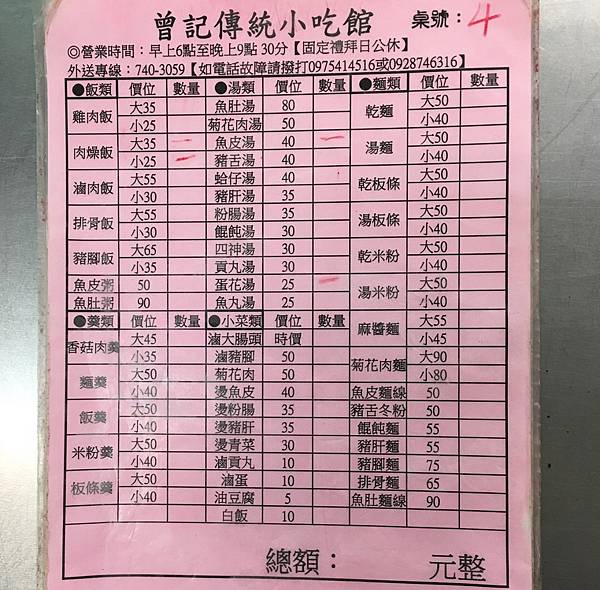 曾記傳統小吃館 桌號：4
◎營業時間：早上6點至晚上9點30分【固定禮拜日公休】
外送專線：740-3059【如電話故障請撥打0975414516或0928746316】
●飯類 價位 數量 ●湯類 價位 數量 ●麵類 價位 數量
雞肉飯 大35 魚肚湯 80 乾麵 大50
小25 菊花肉湯 50 小40
肉燥飯 大35 一 魚皮湯 40 一 湯麵 大50
小25 一 豬舌湯 40 小40
滷肉飯 大55 蛤仔湯 40 乾板條 大50
小30 豬肝湯 35 小40
排骨飯 大55 粉腸湯 35 湯板條 大50
小30 餛飩湯 30 小40
豬腳飯 大65 四神湯 30 乾米粉 大50
小35 貢丸湯 30 小40
魚皮粥 50 蛋花湯 25 一 湯米粉 大50
魚肚粥 90 魚丸湯 25 小40
●羹類 價位 數量 ●小菜類 價位 數量 麻醬麵 大55
香菇肉羹 大45 滷大腸頭 時價 小45
小35 滷豬腳 50 菊花肉麵 大90
麵羹 大50 菊花肉 50 小80
小40 燙魚皮 40 魚皮麵線 50
飯羹 大50 燙粉腸 35 豬舌冬粉 50
小40 燙豬肝 35 餛飩麵 55
米粉羹 大50 燙青菜 30 豬肝麵 55
小40 滷貢丸 10 豬腳麵 75
板條羹 大50 滷蛋 10 排骨麵 65
小40 油豆腐 5 魚肚麵線 90
白飯 10
總額： 元整